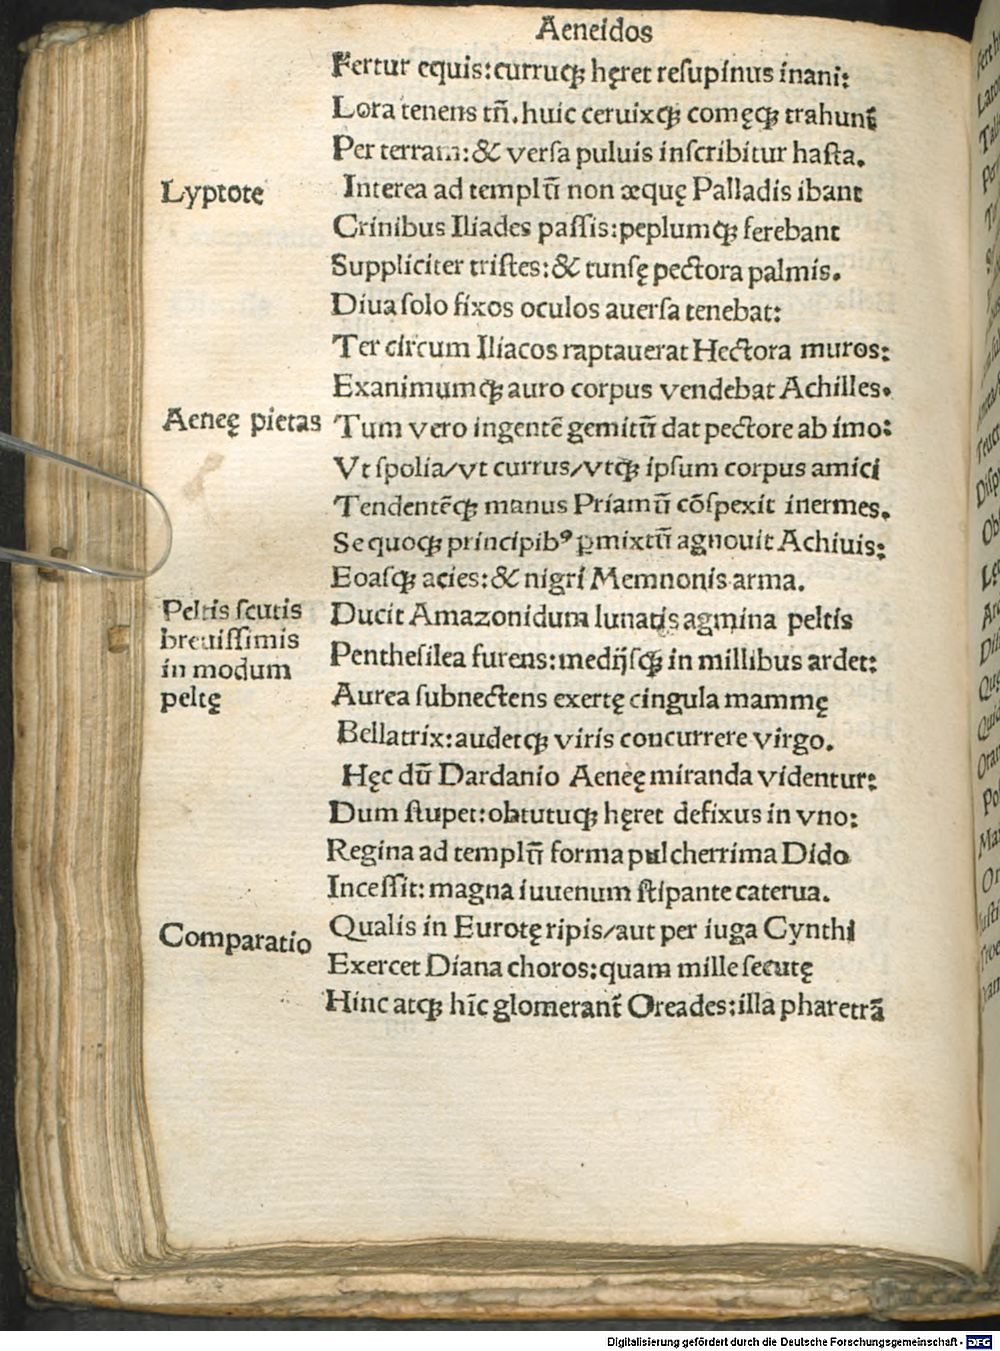 Aeneidos
Fertur equis: curruqꝫ hęret resupinus inani:
Lora tenens tñ. huic ceruixqꝫ comęqꝫ trahunt̃
Per terram: & versa puluis inscribitur hasta.
Lyptote
Interea ad templũ non æquę Palladis ibant
Crinibus Iliades passis: peplumqꝫ ferebant
Suppliciter tristes: & tunsę pectora palmis.
Diua solo fixos oculos auersa tenebat:
Ter circum Iliacos raptauerat Hectora muros:
Exanimumqꝫ auro corpus vendebat Achilles.
Aeneę pietas
Tum vero ingentẽ gemitũ dat pectore ab imo:
Vt spolia/vt currus/vtqꝫ ipsum corpus amici
Tendentẽqꝫ manus Priamũ cõspexit inermes.
Se quoqꝫ principibꝰ ꝑmixtũ agnouit Achiuis:
Eoasqꝫ acies: & nigri Memnonis arma.
Peltis scutis
breuissimis
in modum
peltę
Ducit Amazonidum lunatis agmina peltis
Penthesilea furens: medijsqꝫ in millibus ardet:
Aurea subnectens exertę cingula mammę
Bellatrix: audetqꝫ viris concurrere virgo.
Hęc dũ Dardanio Aeneę miranda videntur:
Dum stupet: obtutuqꝫ hęret defixus in vno:
Regina ad templũ forma pulcherrima Dido
Incessit: magna iuuenum stipante caterua.
Comparatio
Qualis in Eurotę ripis/aut per iuga Cynthi
Exercet Diana choros: quam mille secutę
Hinc atqꝫ hĩc glomerant̃ Oreades: illa pharetrã
Digitalisierung gefördert durch die Deutsche Forschungsgemeinschaft - DFG